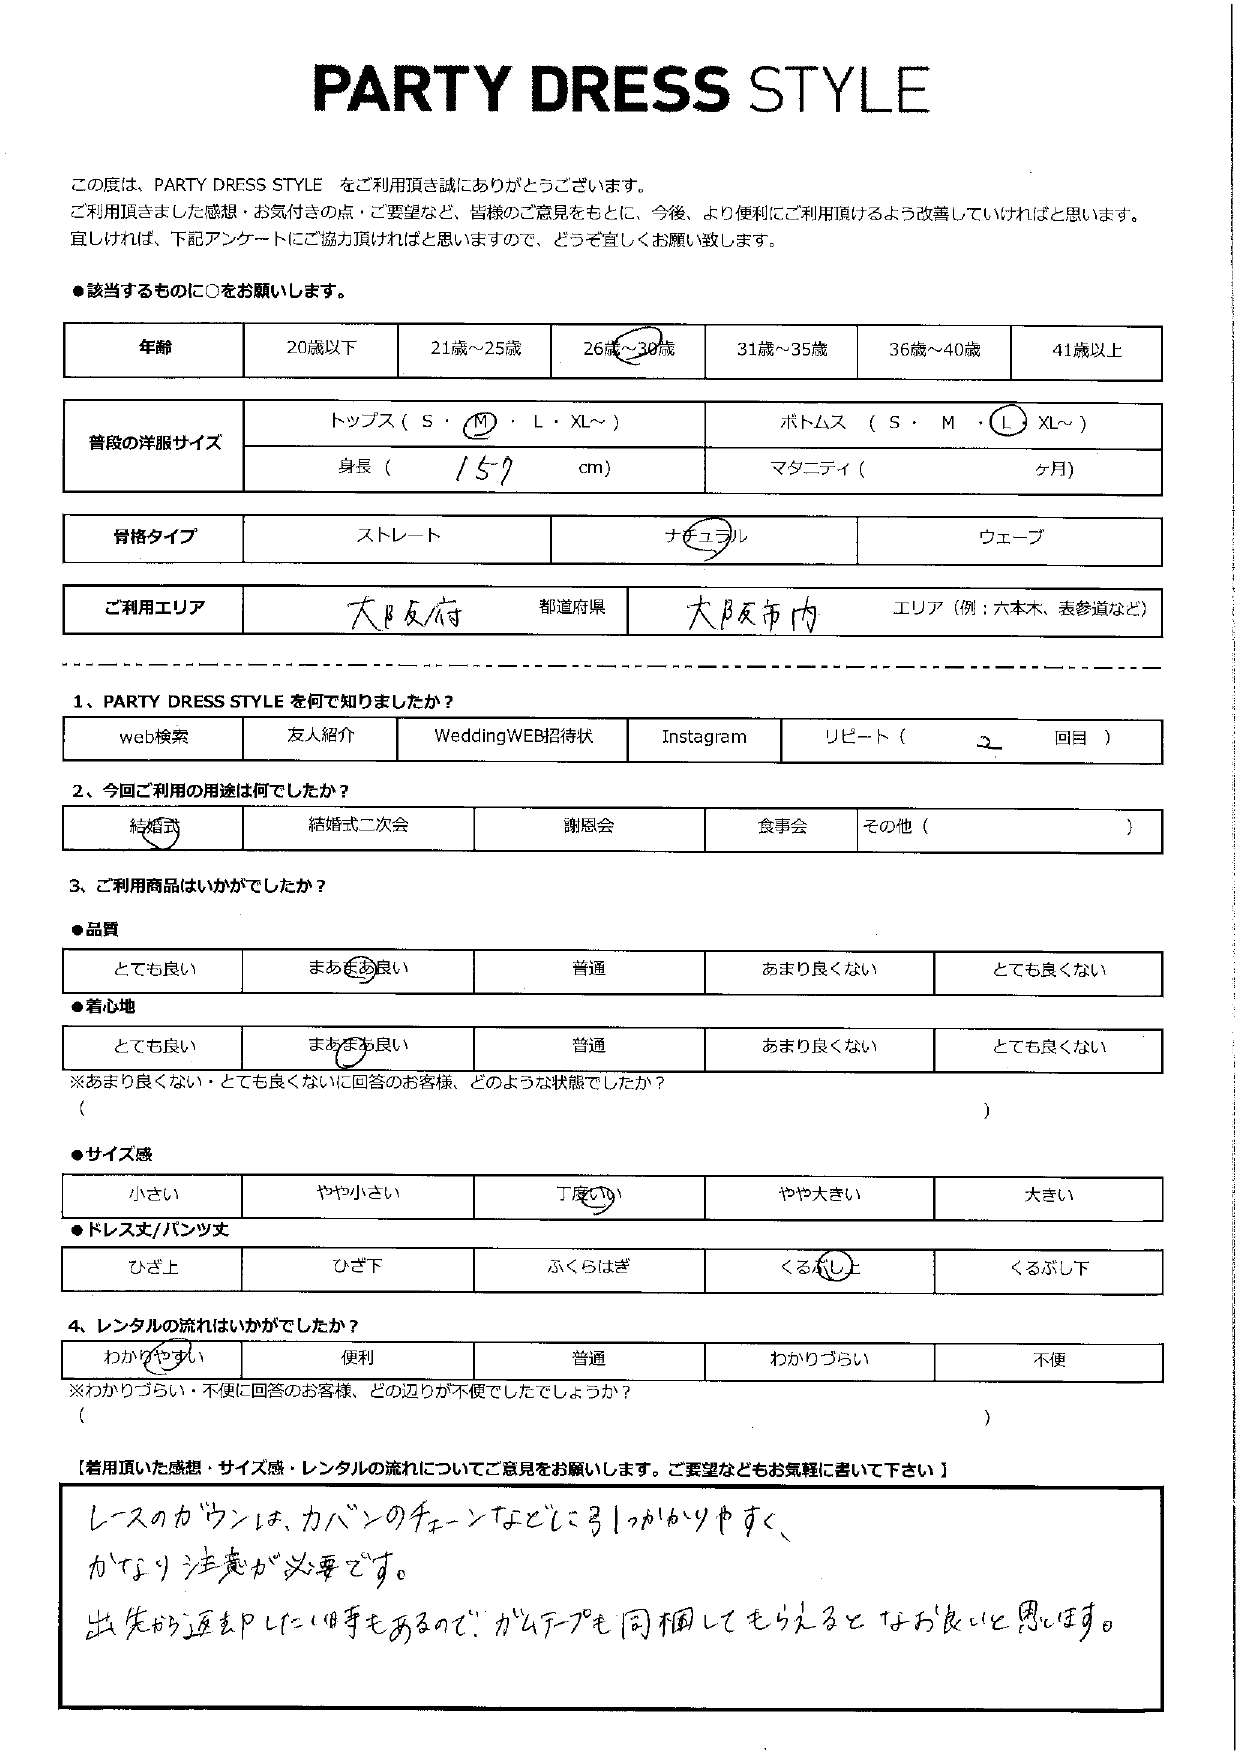 PARTY DRESS STYLE
この度は、PARTY DRESS STYLE をご利用頂き誠にありがとうございます。
ご利用頂きました感想・お気付きの点・ご要望など、皆様のご意見をもとに、今後、より便利にご利用頂けるよう改善していければと思います。
宜しければ、下記アンケートにご協力頂ければと思いますので、どうぞ宜しくお願い致します。
●該当するものに○をお願いします。
年齢 20歳以下 21歳～25歳 26歳～30歳 31歳～35歳 36歳～40歳 41歳以上
普段の洋服サイズ トップス ( S ・ M ・ L ・ XL～ ) ボトムス ( S ・ M ・ L ・ XL～ )
身長 ( 157 cm) マタニティ ( ヶ月)
骨格タイプ ストレート ナチュラル ウェーブ
ご利用エリア 大阪府 都道府県 大阪市内 エリア（例：六本木、表参道など）
1、PARTY DRESS STYLE を何で知りましたか？
web検索 友人紹介 WeddingWEB招待状 Instagram リピート（ 2 回目 ）
2、今回ご利用の用途は何でしたか？
結婚式 結婚式二次会 謝恩会 食事会 その他（ ）
3、ご利用商品はいかがでしたか？
●品質
とても良い まあまあ良い 普通 あまり良くない とても良くない
●着心地
とても良い まあまあ良い 普通 あまり良くない とても良くない
※あまり良くない・とても良くないに回答のお客様、どのような状態でしたか？
( )
●サイズ感
小さい やや小さい 丁度いい やや大きい 大きい
●ドレス丈/パンツ丈
ひざ上 ひざ下 ふくらはぎ くるぶし上 くるぶし下
4、レンタルの流れはいかがでしたか？
わかりやすい 便利 普通 わかりづらい 不便
※わかりづらい・不便に回答のお客様、どの辺りが不便でしたでしょうか？
( )
【着用頂いた感想・サイズ感・レンタルの流れについてご意見をお願いします。ご要望などもお気軽に書いて下さい 】
レースのガウンは、カバンのチェーンなどに引っかかりやすく、
かなり注意が必要です。
出先から返却したい時もあるので、ガムテープも同梱してもらえると なお良いと思います。